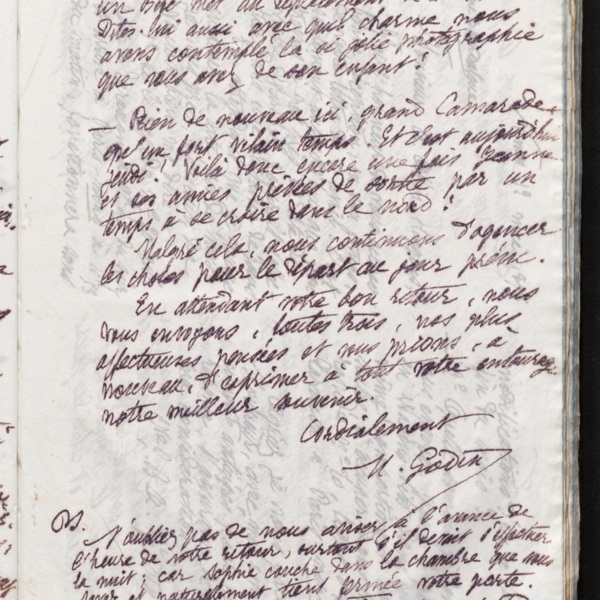 Dites-lui aussi avec quel charme nous
avons contemplé la si jolie photographie
que vous avez de son enfant!
— Rien de nouveau ici, grand Camarade,
qu'un fort vilain temps. Et c'est aujourd'hui
jeudi! Voilà donc encore une fois Jeanne
et ses amies privées de sortie par un
temps à se croire dans le nord!
Malgré cela, nous continuons d'agencer
les choses pour le départ au jour prévu.
En attendant votre bon retour, nous
vous envoyons, toutes trois, nos plus
affectueuses pensées et vous prions, à
nouveau, d'exprimer à tout votre entourage
notre meilleur souvenir.
Cordialement
M. Godin
PS. N'oubliez pas de nous aviser à l'avance de
l'heure de votre retour, surtout s'il devait s'effectuer
la nuit; car Sophie couche dans la chambre que vous
et naturellement tient fermée votre porte.